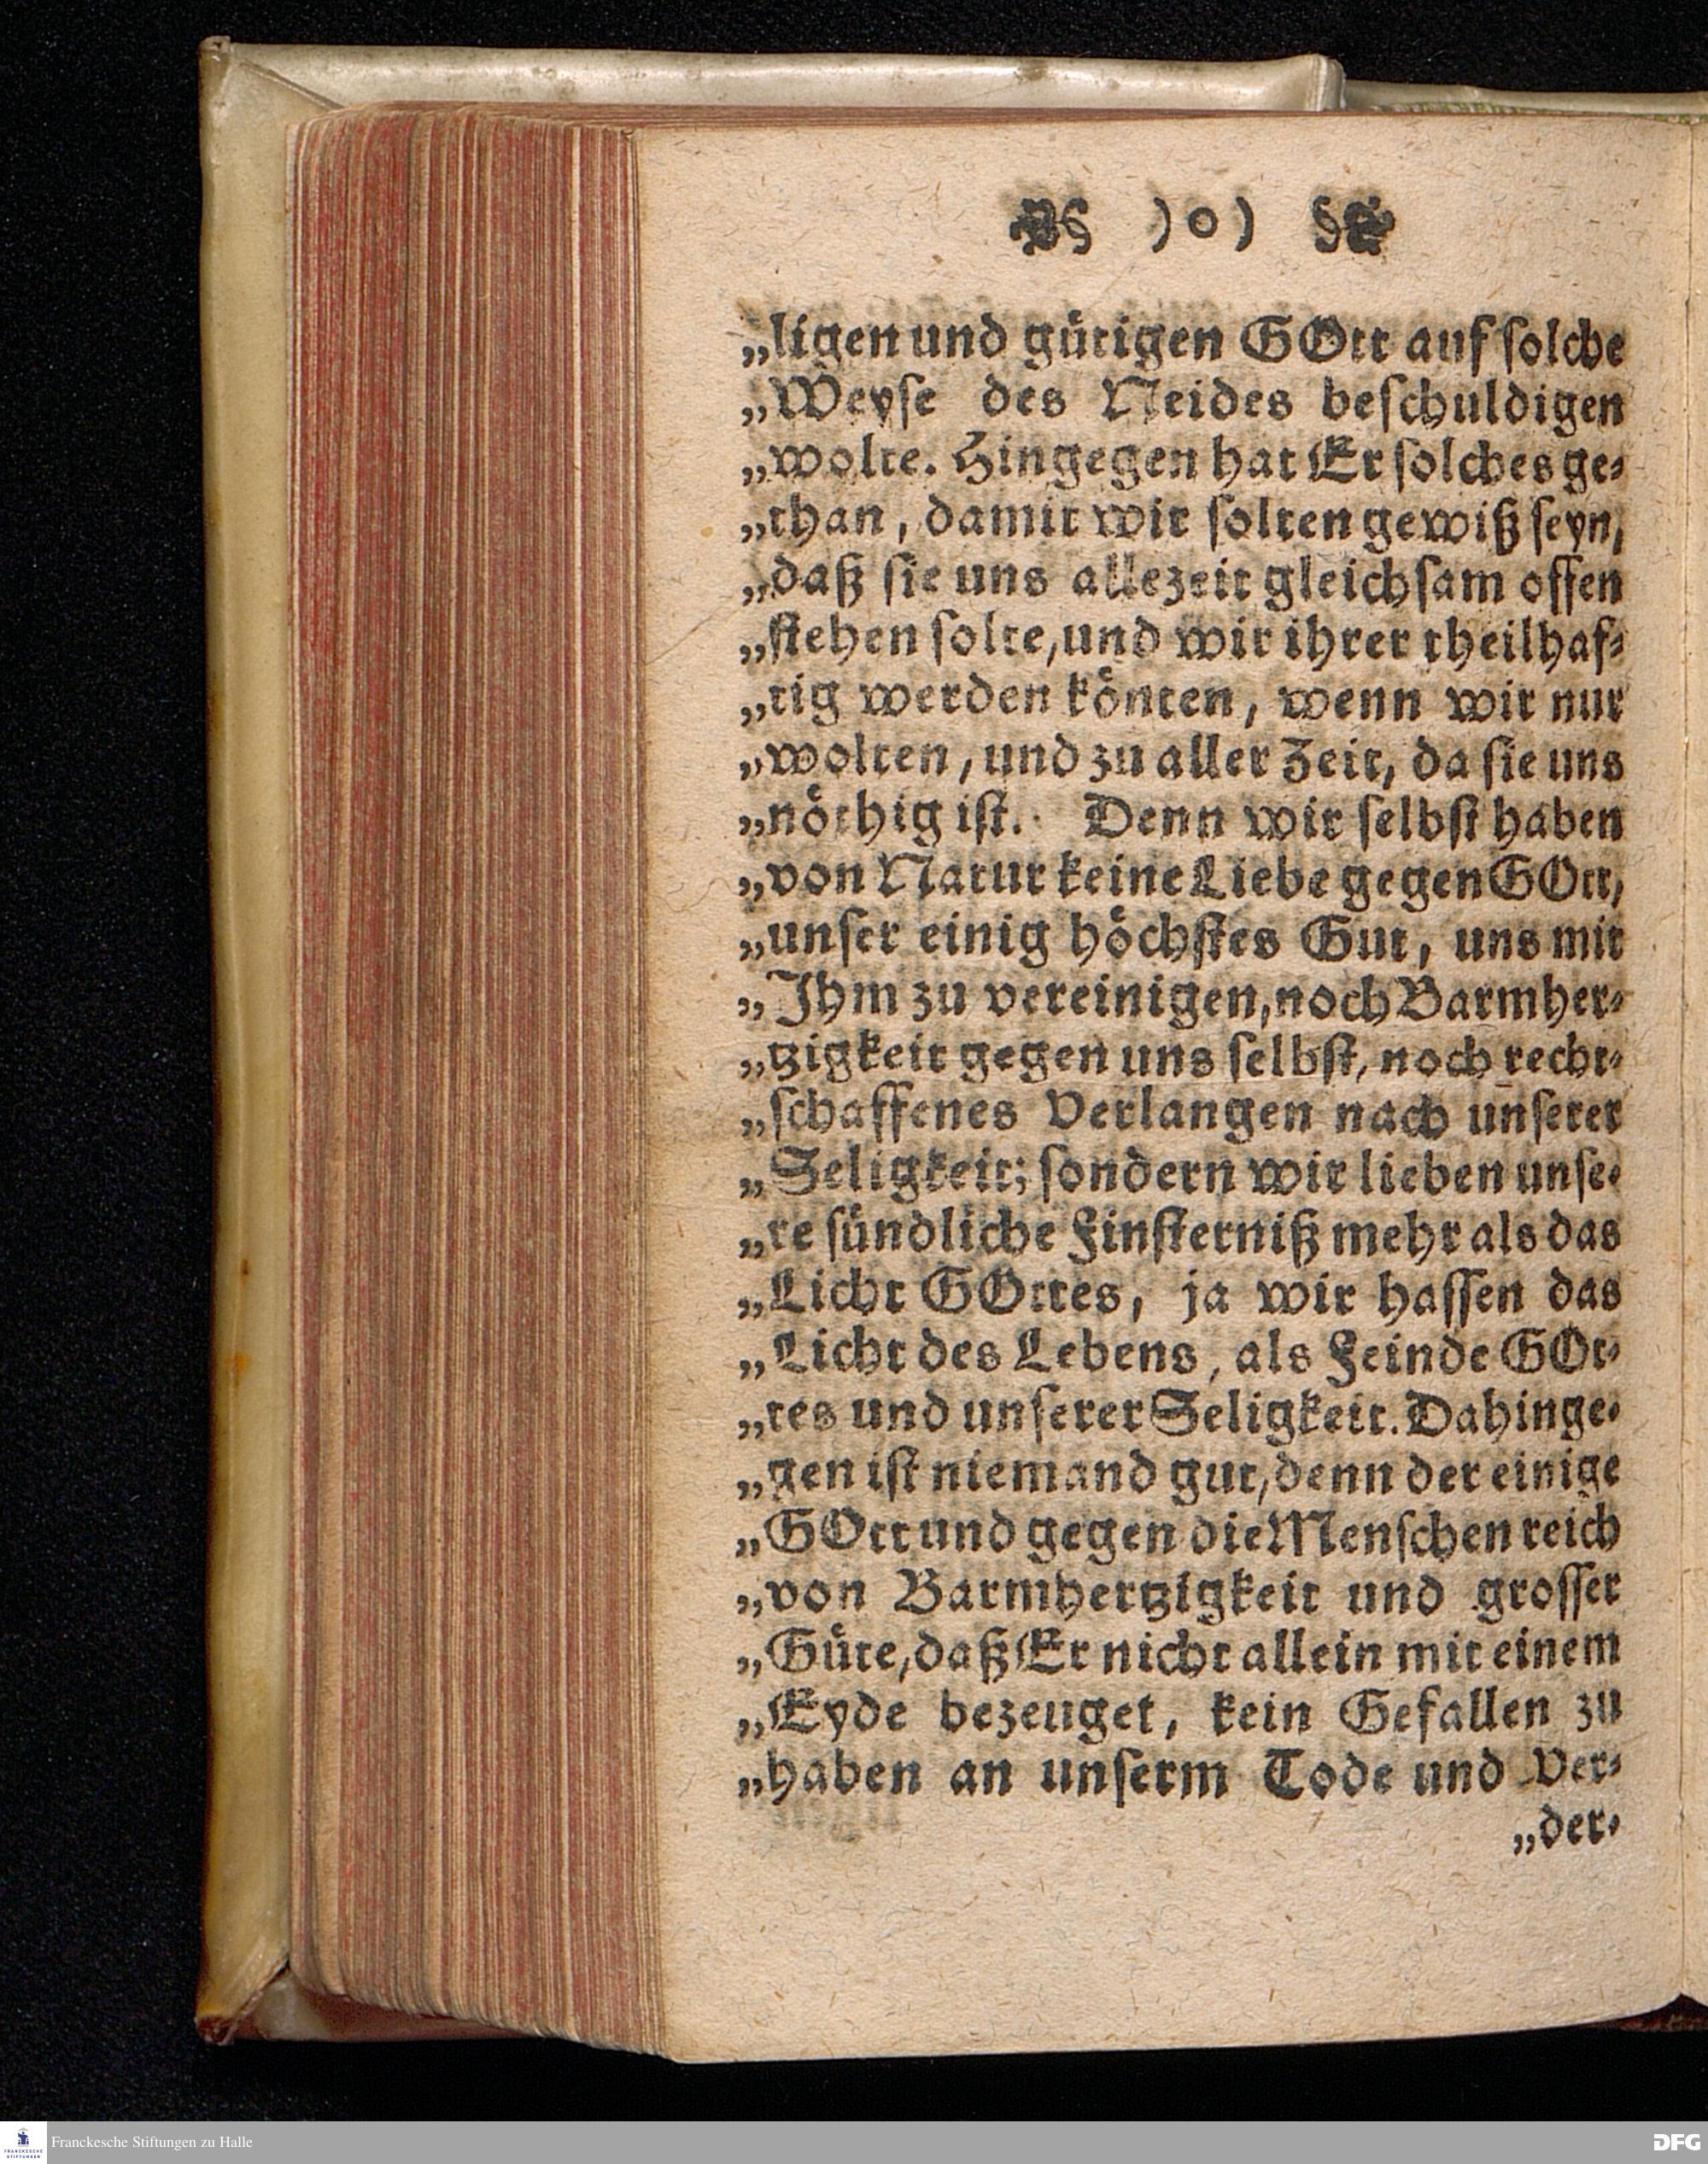 )o(
„ligen und gütigen GOtt auf solche
„Weyse des Neides beschuldigen
„wolte. Hingegen hat Er solches ge-
„than, damit wir solten gewiß seyn,
„daß sie uns allezeit gleichsam offen
„stehen solte, und wir ihrer theilhaf-
„tig werden könten, wenn wir nur
„wolten, und zu aller Zeit, da sie uns
„nöthig ist. Denn wir selbst haben
„von Natur keine Liebe gegen GOtt,
„unser einig höchstes Gut, uns mit
„Ihm zu vereinigen, noch Barmher-
„tzigkeit gegen uns selbst, noch recht-
„schaffenes Verlangen nach unserer
„Seligkeit; sondern wir lieben unse-
„re sündliche Finsterniß mehr als das
„Licht GOttes, ja wir hassen das
„Licht des Lebens, als Feinde GOt-
„tes und unserer Seligkeit. Dahinge-
„gen ist niemand gut, denn der einige
„GOtt und gegen die Menschen reich
„von Barmhertzigkeit und grosser
„Güte, daß Er nicht allein mit einem
„Eyde bezeuget, kein Gefallen zu
„haben an unserm Tode und Ver-
„der-
FRANCKESCHE
STIFTUNGEN
Franckesche Stiftungen zu Halle
DFG